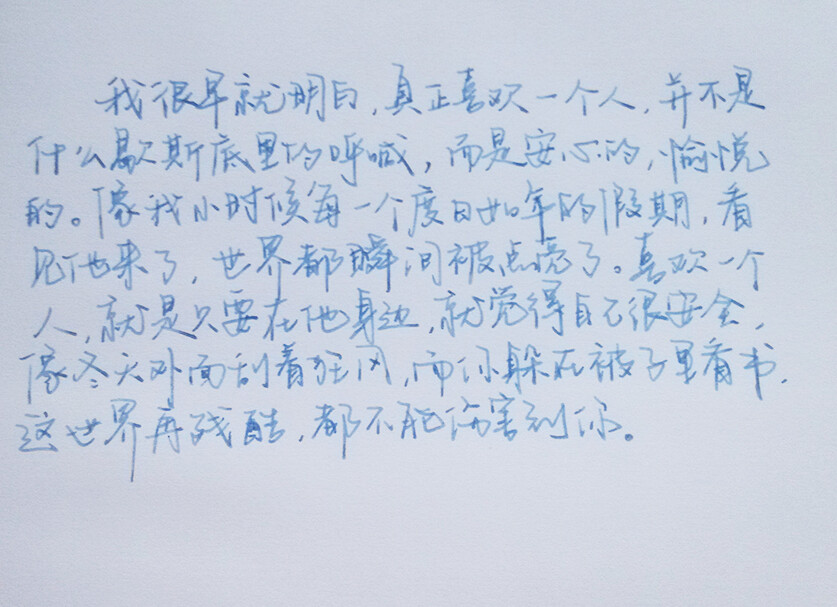 我很早就明白，真正喜欢一个人，并不是
什么歇斯底里的呼喊，而是安心的，愉悦
的。像我小时候每一个度日如年的假期，看
见他来了，世界都瞬间被点亮了。喜欢一个
人，就是只要在他身边，就觉得自己很安全，
像冬天外面刮着狂风，而你躲在被子里看书，
这世界再残酷，都不能伤害到你。